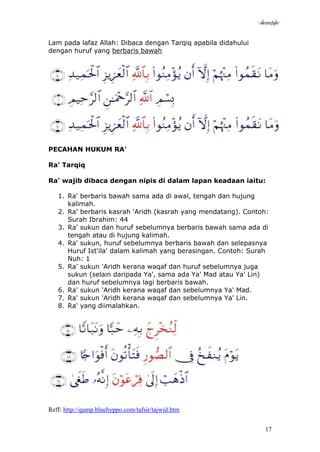 -akmizdiyah-
Lam pada lafaz Allah: Dibaca dengan Tarqiq apabila didahului
dengan huruf yang berbaris bawah
وَمَا نَقَمُوا۟ مِنْهُمْ إِلَّآ أَن يُؤْمِنُوا۟ بِٱللَّهِ ٱلْعَزِيزِ ٱلْحَمِيدِ
بِسْمِ ٱللَّهِ ٱلرَّحْمَـٰنِ ٱلرَّحِيمِ
وَمَا نَقَمُوا۟ مِنْهُمْ إِلَّآ أَن يُؤْمِنُوا۟ بِٱللَّهِ ٱلْعَزِيزِ ٱلْحَمِيدِ
PECAHAN HUKUM RA'
Ra' Tarqiq
Ra' wajib dibaca dengan nipis di dalam lapan keadaan iaitu:
1. Ra' berbaris bawah sama ada di awal, tengah dan hujung
kalimah.
2. Ra' berbaris kasrah 'Aridh (kasrah yang mendatang). Contoh:
Surah Ibrahim: 44
3. Ra' sukun dan huruf sebelumnya berbaris bawah sama ada di
tengah atau di hujung kalimah.
4. Ra' sukun, huruf sebelumnya berbaris bawah dan selepasnya
Huruf Ist'ila' dalam kalimah yang berasingan. Contoh: Surah
Nuh: 1
5. Ra' sukun 'Aridh kerana waqaf dan huruf sebelumnya juga
sukun (selain daripada Ya', sama ada Ya' Mad atau Ya' Lin)
dan huruf sebelumnya lagi berbaris bawah.
6. Ra' sukun 'Aridh kerana waqaf dan sebelumnya Ya' Mad.
7. Ra' sukun 'Aridh kerana waqaf dan sebelumnya Ya' Lin.
8. Ra' yang diimalahkan.
لِّنُخْرِجَ بِهِۦ حَبًّا وَنَبَاتًا
يَوْمَ يُنفَخُ فِى ٱلصُّورِ فَتَأْتُونَ أَفْوَاجًا
ٱذْهَبْ إِلَىٰ فِرْعَوْنَ إِنَّهُۥ طَغَىٰ
Reff: http://qump.bluehyppo.com/tafsir/tajwid.htm
17